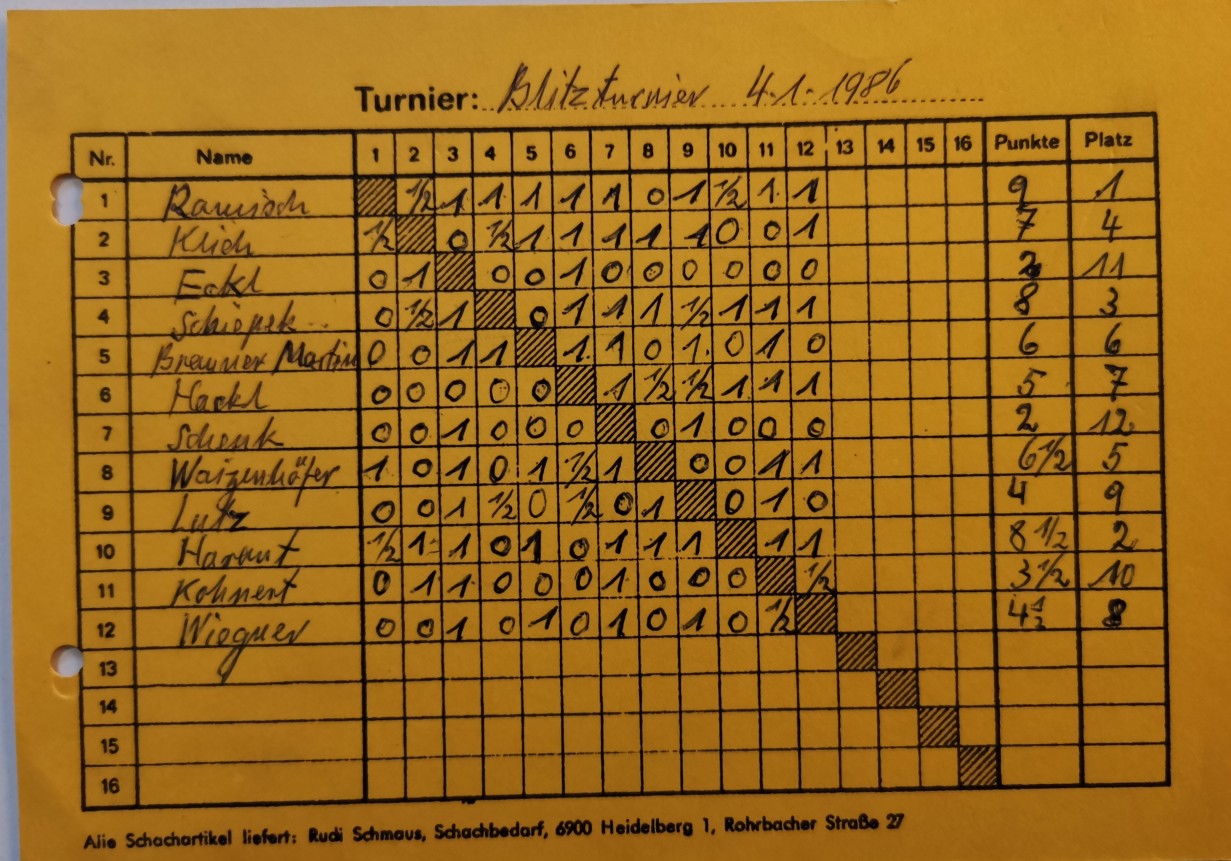 Turnier: Blitzturnier 4.1.1986
Nr. Name 1 2 3 4 5 6 7 8 9 10 11 12 13 14 15 16 Punkte Platz
1 Ramisch ½ 1 1 1 1 1 0 1 ½ 1 1 9 1
2 Klich ½ 0 ½ 1 1 1 1 1 0 0 1 7 4
3 Eckl 0 1 0 0 1 0 0 0 0 0 0 2 11
4 Schiopek 0 ½ 1 0 1 1 1 ½ 1 1 1 8 3
5 Brenner Martin 0 0 1 1 1 1 0 1 0 1 0 6 6
6 Hackl 0 0 0 0 0 1 ½ ½ 1 1 1 5 7
7 Schenk 0 0 1 0 0 0 0 1 0 0 0 2 12
8 Waizenhöfer 1 0 1 0 1 ½ 1 0 0 1 1 6½ 5
9 Lutz 0 0 1 ½ 0 ½ 0 1 0 1 0 4 9
10 ½ 1 1 0 1 0 1 1 1 1 1 8½ 2
11 Kohnert 0 1 1 0 0 0 1 0 0 0 ½ 3½ 10
12 Wiegner 0 0 1 0 1 0 1 0 1 0 ½ 4½ 8
13
14
15
16
Alle Schachartikel liefert: Rudi Schmaus, Schachbedarf, 6900 Heidelberg 1, Rohrbacher Straße 27